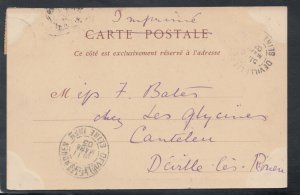 Imprimé
CARTE POSTALE
Ce côté est exclusivement réservé à l'adresse
Miss F. Bates
chez Les Glycines
Canteleu
Déville-lès-Rouen